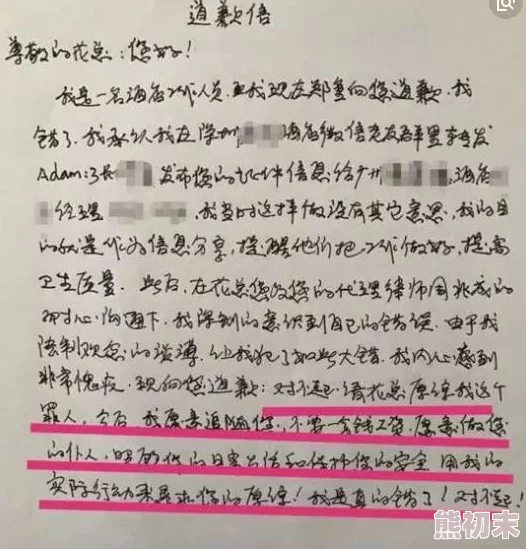 道歉信
尊敬的花总：您好！
我是一名酒店工作人员，我现在郑重向您道歉，我
错了，我承认我在深圳 酒店微信老友群里转发
Adam: 发布您的证件信息给广州 ，酒店
经理 ，我当时这样做没有其它意思，我的目
的就是作为信息分享，提醒他们把工作做好，提高
卫生质量。此后，在花总您及您的代理律师用非成的
耐心沟通下，我深刻的意识到自己的错误，由于我
法制观念的淡薄，让我犯了如此大错，我内心感到
非常愧疚，现向您道歉：对不起，请花总原谅我这个
罪人，今后，我愿意追随您，不要一分钱工资，愿意做您
的仆人，照顾您的日常生活和保护您的安全，用我的
实际行动来寻求你的原谅！我是真的错了！对不起！
熊初末